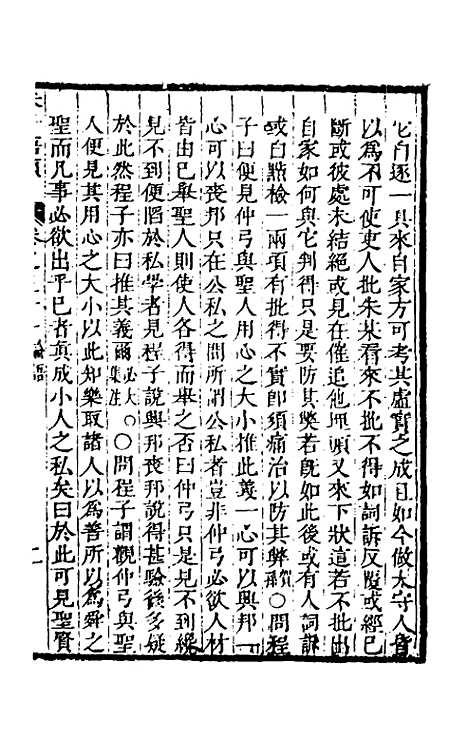 它自逐一具來自家方可考其虛實之成且如今做太守人皆
以爲不可使吏人批朱某看來不批不得如詞訴反覆或經已
斷或彼處未結絕或見在催追他埋頭又來下狀這若不批出
自家如何與它判得只是要防其弊若旣如此後或有人詞訴
或自㸃檢一兩項有批得不實卽須痛治以防其弊賀孫〇問程
子曰便見仲弓與聖人用心之大小推此義一心可以興邦一
心可以喪邦只在公私之間所謂公私者豈非仲弓必欲人材
皆由己舉聖人則使人各得而舉之否曰仲弓只是見不到纔
見不到便陷於私學者見程子說興邦喪邦說得甚驗後多疑
於此然程子亦曰推其義爾必大集注〇〇問程子謂觀仲弓與聖
人便見其用心之大小以此知樂取諸人以爲善所以爲舜之
聖而凡事必欲出乎己者眞成小人之私矣曰於此可見聖賢
朱子語類 卷之四十 論語 二